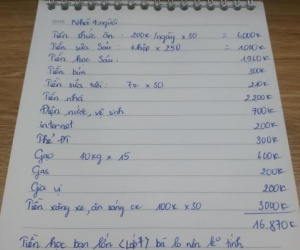 Nhà 4 người
Tiền thức ăn : 200k/ngày x 30 = 6,000k
Tiền sữa Sâu : 4 hộp x 250 = 1,000k
Tiền học Sâu : 1960k
Tiền bỉm 300k
Tiền sữa tươi : 7k x 30 210k
Tiền nhà 2.200k
Điện, nước, vệ sinh 700k
internet 200k
300k
Gạo 40kg x 15 600k
Gas 200k
Gia vị 200k
Tiền xăng xe, ăn sáng ck 100k x 30 3000k
16.870k
Tiền học bạn lớn (Lớp 7) bà lo nên k tính